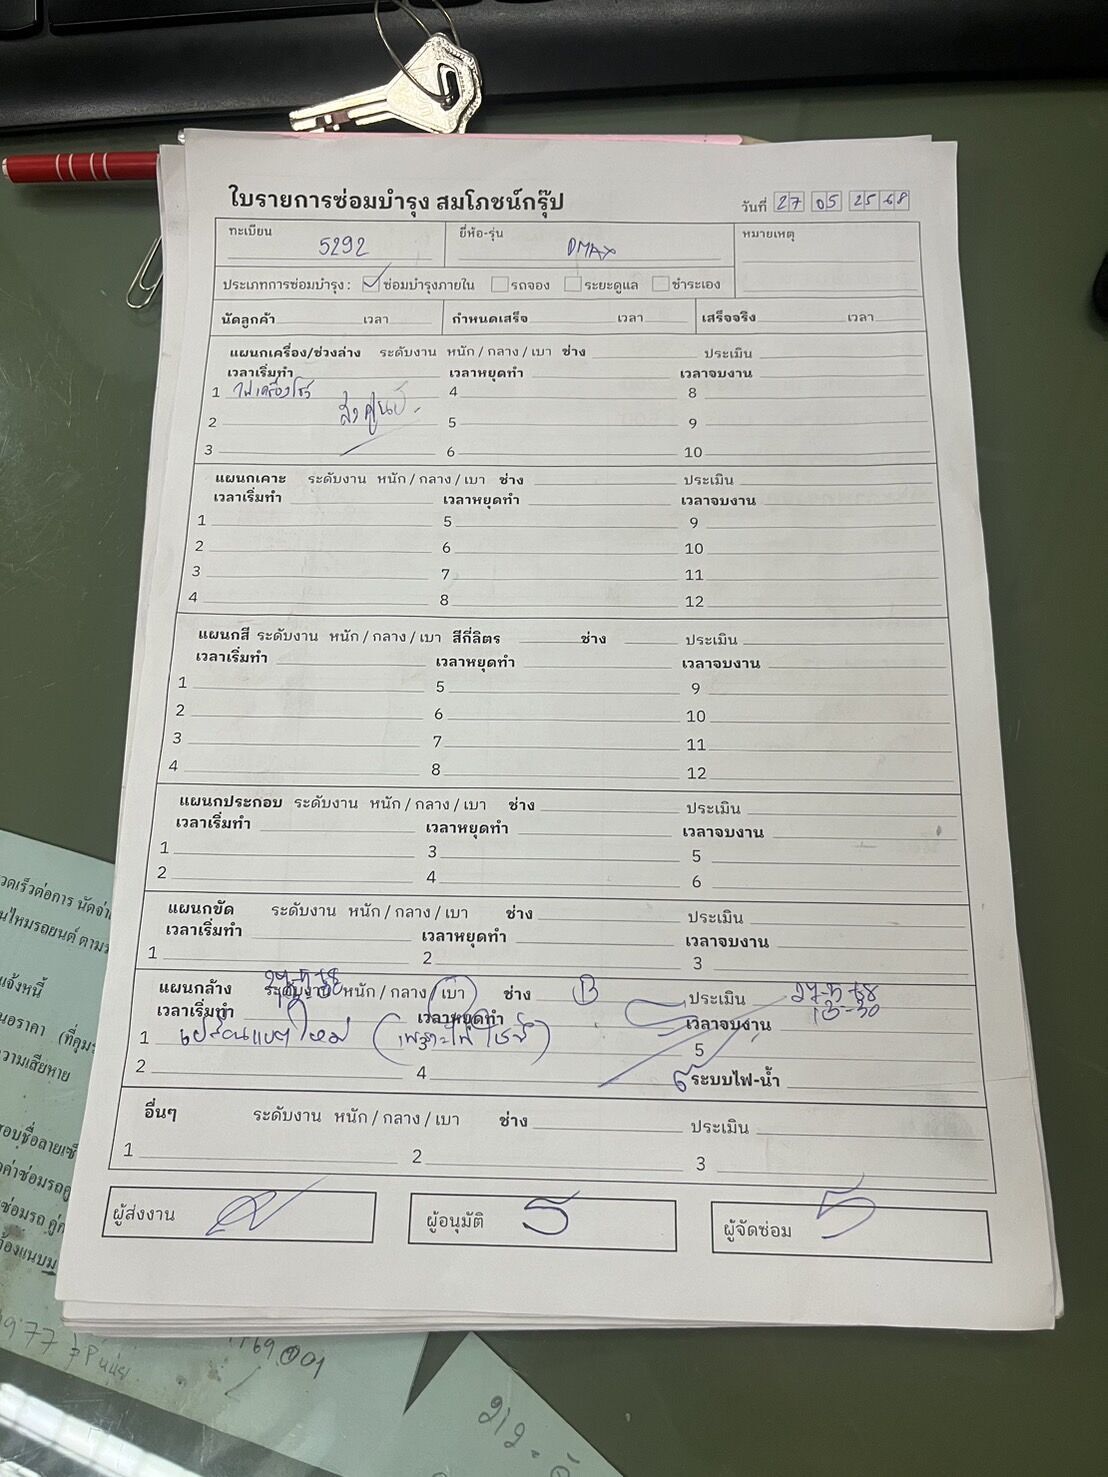 ใบรายการซ่อมบำรุง สมโภชน์กรุ๊ป
วันที่ 27 05 2568
ทะเบียน 5292 ยี่ห้อ-รุ่น DMAX หมายเหตุ
ประเภทการซ่อมบำรุง : ซ่อมบำรุงภายใน รถจอง ระยะดูแล ชำระเอง
นัดลูกค้า เวลา กำหนดเสร็จ เวลา เสร็จจริง เวลา
แผนกเครื่อง/ช่วงล่าง ระดับงาน หนัก / กลาง / เบา ช่าง ประเมิน
เวลาเริ่มทำ เวลาหยุดทำ เวลาจบงาน
1 ไฟเครื่องโชว์ 4 8
2 ส่งศูนย์ 5 9
3 6 10
แผนกเคาะ ระดับงาน หนัก / กลาง / เบา ช่าง ประเมิน
เวลาเริ่มทำ เวลาหยุดทำ เวลาจบงาน
1 5 9
2 6 10
3 7 11
4 8 12
แผนกสี ระดับงาน หนัก / กลาง / เบา สีกี่ลิตร ช่าง ประเมิน
เวลาเริ่มทำ เวลาหยุดทำ เวลาจบงาน
1 5 9
2 6 10
3 7 11
4 8 12
แผนกประกอบ ระดับงาน หนัก / กลาง / เบา ช่าง ประเมิน
เวลาเริ่มทำ เวลาหยุดทำ เวลาจบงาน
1 3 5
2 4 6
แผนกขัด ระดับงาน หนัก / กลาง / เบา ช่าง ประเมิน
เวลาเริ่มทำ เวลาหยุดทำ เวลาจบงาน
1 2 3
แผนกล้าง ระดับงาน หนัก / กลาง / เบา ช่าง B ประเมิน 27-5-68
เวลาเริ่มทำ เวลาหยุดทำ เวลาจบงาน
1 เปลี่ยนแบตใหม่ 3 5
2 4 6 ระบบไฟ-น้ำ
อื่นๆ ระดับงาน หนัก / กลาง / เบา ช่าง ประเมิน
1 2 3
ผู้ส่งงาน ผู้อนุมัติ ผู้จัดซ่อม